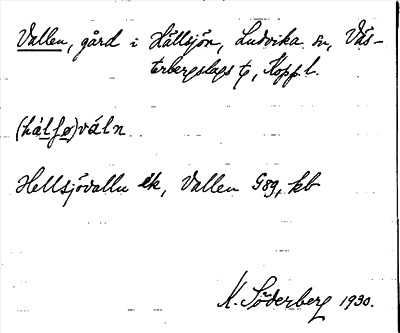 Vallen, gård i Hällsjön, Ludvika sn, Väs-
terbergslags tg, Kopp. l.
(hálfø)váln
Hellsjövallu ek, Vallen G89, kb
K. Söderberg 1930.